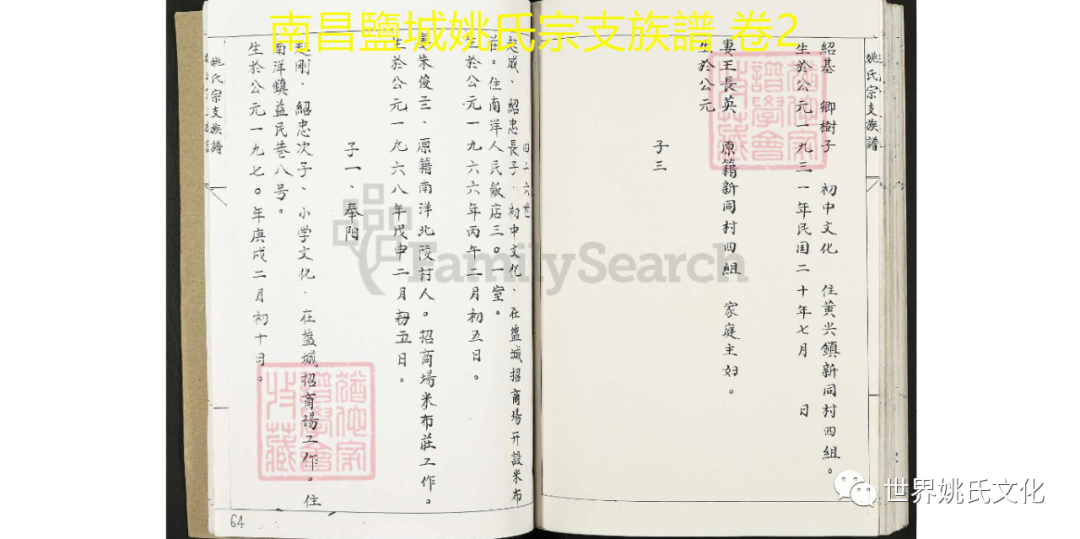 南昌鹽城姚氏宗支族譜 卷2
姚氏宗支族譜
紹基 卿樹子 初中文化 住黄兴鎮新同村四組。
生於公元一九三一年民国二十年七月 日
妻王長英 原籍新同村四組 家庭主妇。
生於公元
子三
四十六世
起威、紹忠長子、初中文化、在盐城招商場开設米布
莊。住南洋人民飯店三〇一室。
生於公元一九六六年丙午二月初五日。
妻朱俊兰、原籍南洋北陵討人。招商場米布莊工作。
生於公元一九六八年戊申二月初五日。
子一、奉阳
起刚、紹忠次子、小学文化、在盐城招商場工作。住
南洋鎮益民巷八号。
生於公元一九七〇年庚戌二月初十日。
姚氏宗支族譜
64
FamilySearch
世界姚氏文化